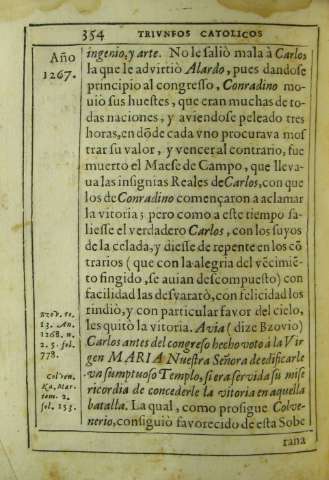 354 TRIVNFOS CATOLICOS
Año
1267.
ingenio, y arte. No le saliò mala à Carlos
la que le advirtiò Alardo, pues dandose
principio al congresso, Conradino mo-
uiò sus huestes, que eran muchas de to-
das naciones, y aviendose peleado tres
horas, en dõde cada vno procurava mos
trar su valor, y vencer al contrario, fue
muerto el Maese de Campo, que lleva-
ua las insignias Reales de Carlos, con que
los de Conradino començaron a aclamar
la vitoria; pero como a este tiempo sa-
liesse el verdadero Carlos, con los suyos
de la celada, y diesse de repente en los cõ
trarios (que con la alegria del vẽcimiẽ-
to fingido, se auian descompuesto) con
facilidad las desvaratò, con felicidad los
rindiò, y con particular favor del cielo,
les quitò la vitoria. Avia (dize Bzovio)
Carlos antes del congreso hecho voto à la Vir
gen MARIA Nuestra Señora de edificarle
va sumptuoso Templo, si era servida su mise
ricordia de concederle la vitoria en aquella
batalla. La qual, como prosigue Colve-
nerio, consiguiò favorecido de esta Sobe
rana
Bzov. to.
13. An.
1268. n.
2. 5. fol.
778.
Colven.
Ka. Mar.
tom. 2.
fol. 155.